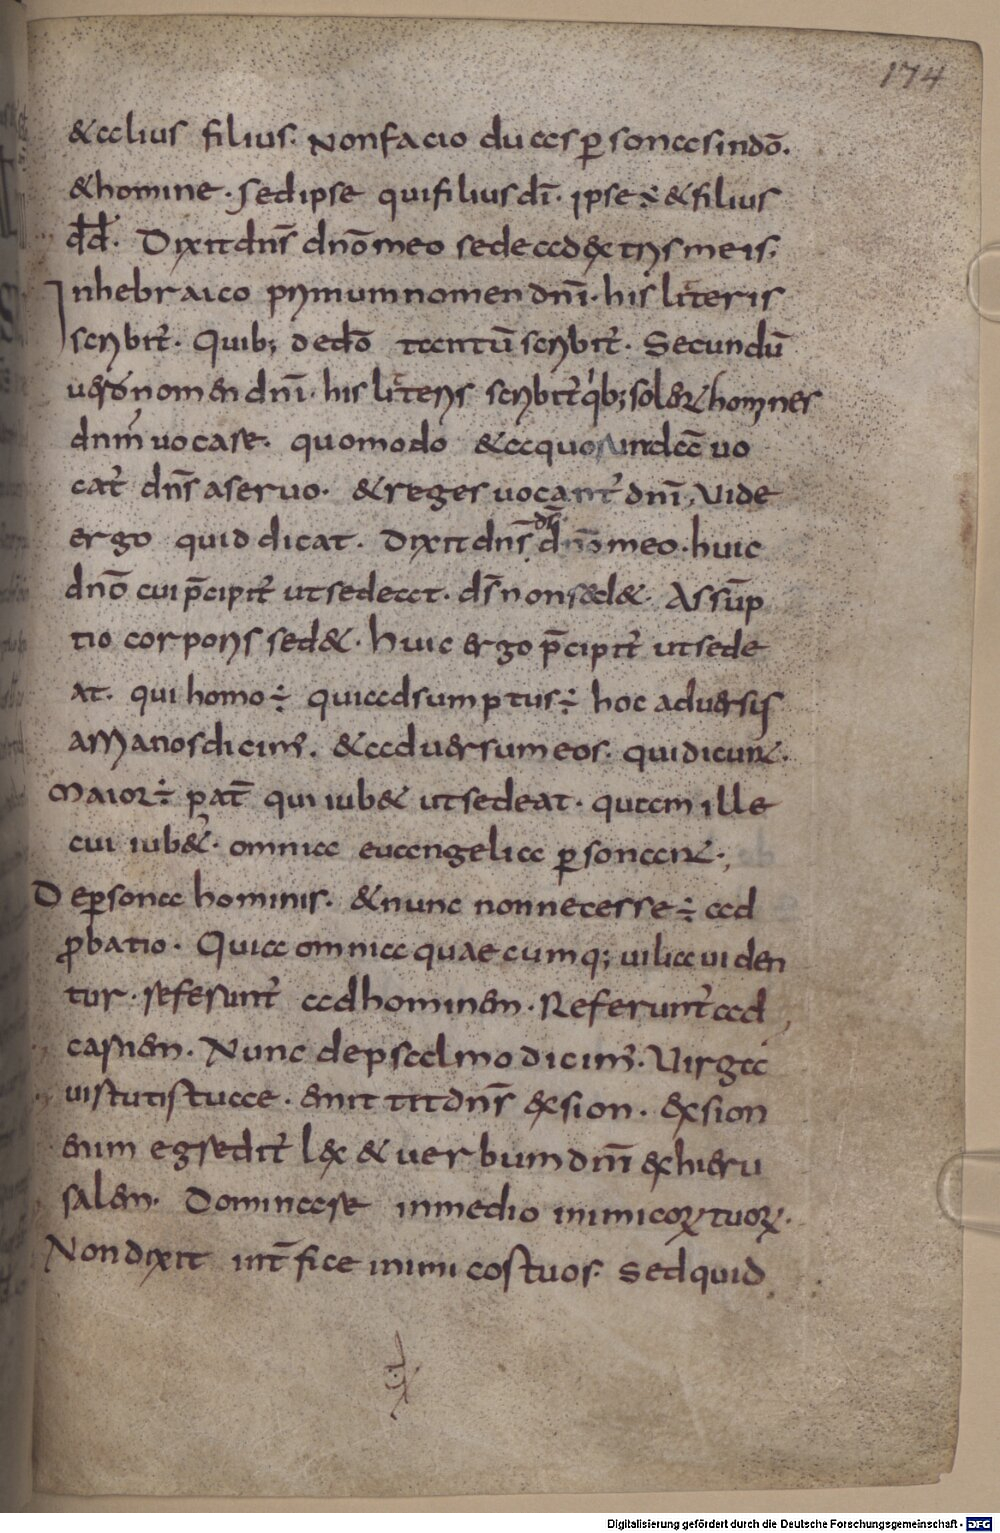 174
&alius filius. Nonfacio duas p̱sonas indō.
&homine. sedipse quifilius dī. ipse ÷ &filius
dd̄. Dixit dn̄s dnō meo sede adextris meis.
Inhebraico primum nomen dn̄i. his literis
scribit̄. Quib; dedō tantū scribit̄. Secundū
uero nomen dn̄i. his literis scribit̄ qib; solent homines
dnm̄ uocare. quomodo &aquosundā uo
cat̄ dn̄s aseruo. &reges uocant̄ dn̄i, Uide
ergo quid dicat. Dixit dn̄s ds̄ dnō meo. huic
dnō cui p̄cipit̄ utsedeat. ds̄ non sed&. Assūp
tio corporis sed&. huic ergo p̄cipit̄ utsede
at. qui homo ÷ quiadsumptus ÷ hoc aduersis
arrianos dicim'. &aduersum eos. qui dicunt.
Maior ÷ pat̄ qui iub& utsedeat. quam ille
cui iub&'. omnia euangelica p̱sonant.,
De p̱sona hominis. &nunc nonnecesse ÷ ad
p̱batio. Quia omnia quaecumq; uilia uiden
tur. referunt̄ adhominem. Referunt̄ ad
carnem. Nunc depsalmo dicim'. Uirga
uirtutistuae. emittit dn̄s exsion. exsion
enim egredit̄ lex & uerbum dn̄i exhieru
salem. Dominare inmedio inimicoꝝ tuoꝝ.
Nondixit int̄fice inimicostuos. sedquid
Digitalisierung gefördert durch die Deutsche Forschungsgemeinschaft - DFG